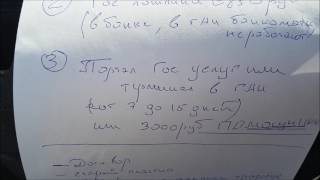 ② Гос пошлина
(в банке, в ГАИ банкоматы
не работают)
③ Портал Гос услуг или
терминал в ГАИ
от 7 до 15 дней)
или 3000 руб ПОмощник
— Договор
— старые